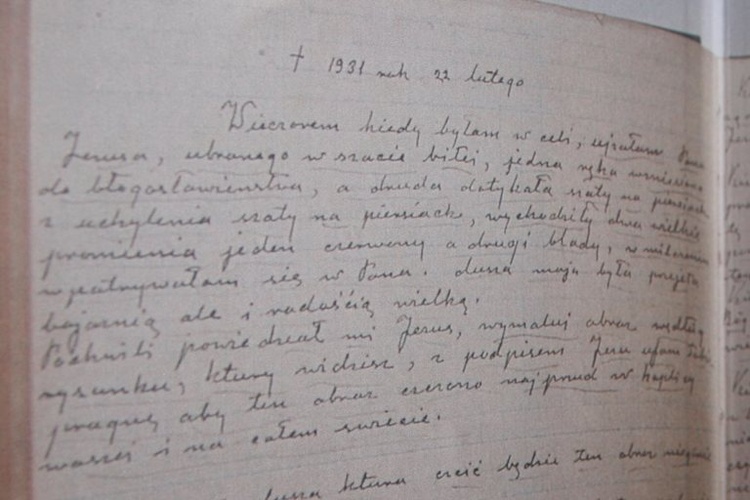 † 1931 rok 22 lutego
Wieczorem kiedy byłam w celi, ujrałam Pana
Jezusa, ubranego w szacie białej, jedna ręka wzniesiona
do błogosławieństwa, a druda dotykała szaty na piersiach
z uchylenia szaty na piersiach, wychodziły dwa wielkie
promienia jeden czerwony a drugi blady, w milczeniu
wpatrywałam się w Pana. dusza moja była przejęta
bojaźnią ale i radością wielką.
Pochwili powiedział mi Jezus, wymaluj obraz według
rysunku, ktury widzisz, z podpisem Jezu ufam Tobie
pragnę aby ten obraz czczono najprzud w kaplicy
waszej i na całem świecie.
dusza ktura czcić będzie ten obraz nie